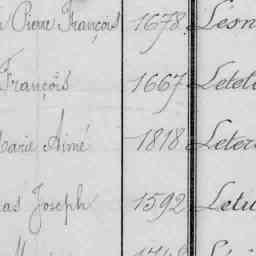 Pierre François 1678 Leon
François 1667 Letel
Marie Aimé 1818 Leter
as Joseph 1592 Letu